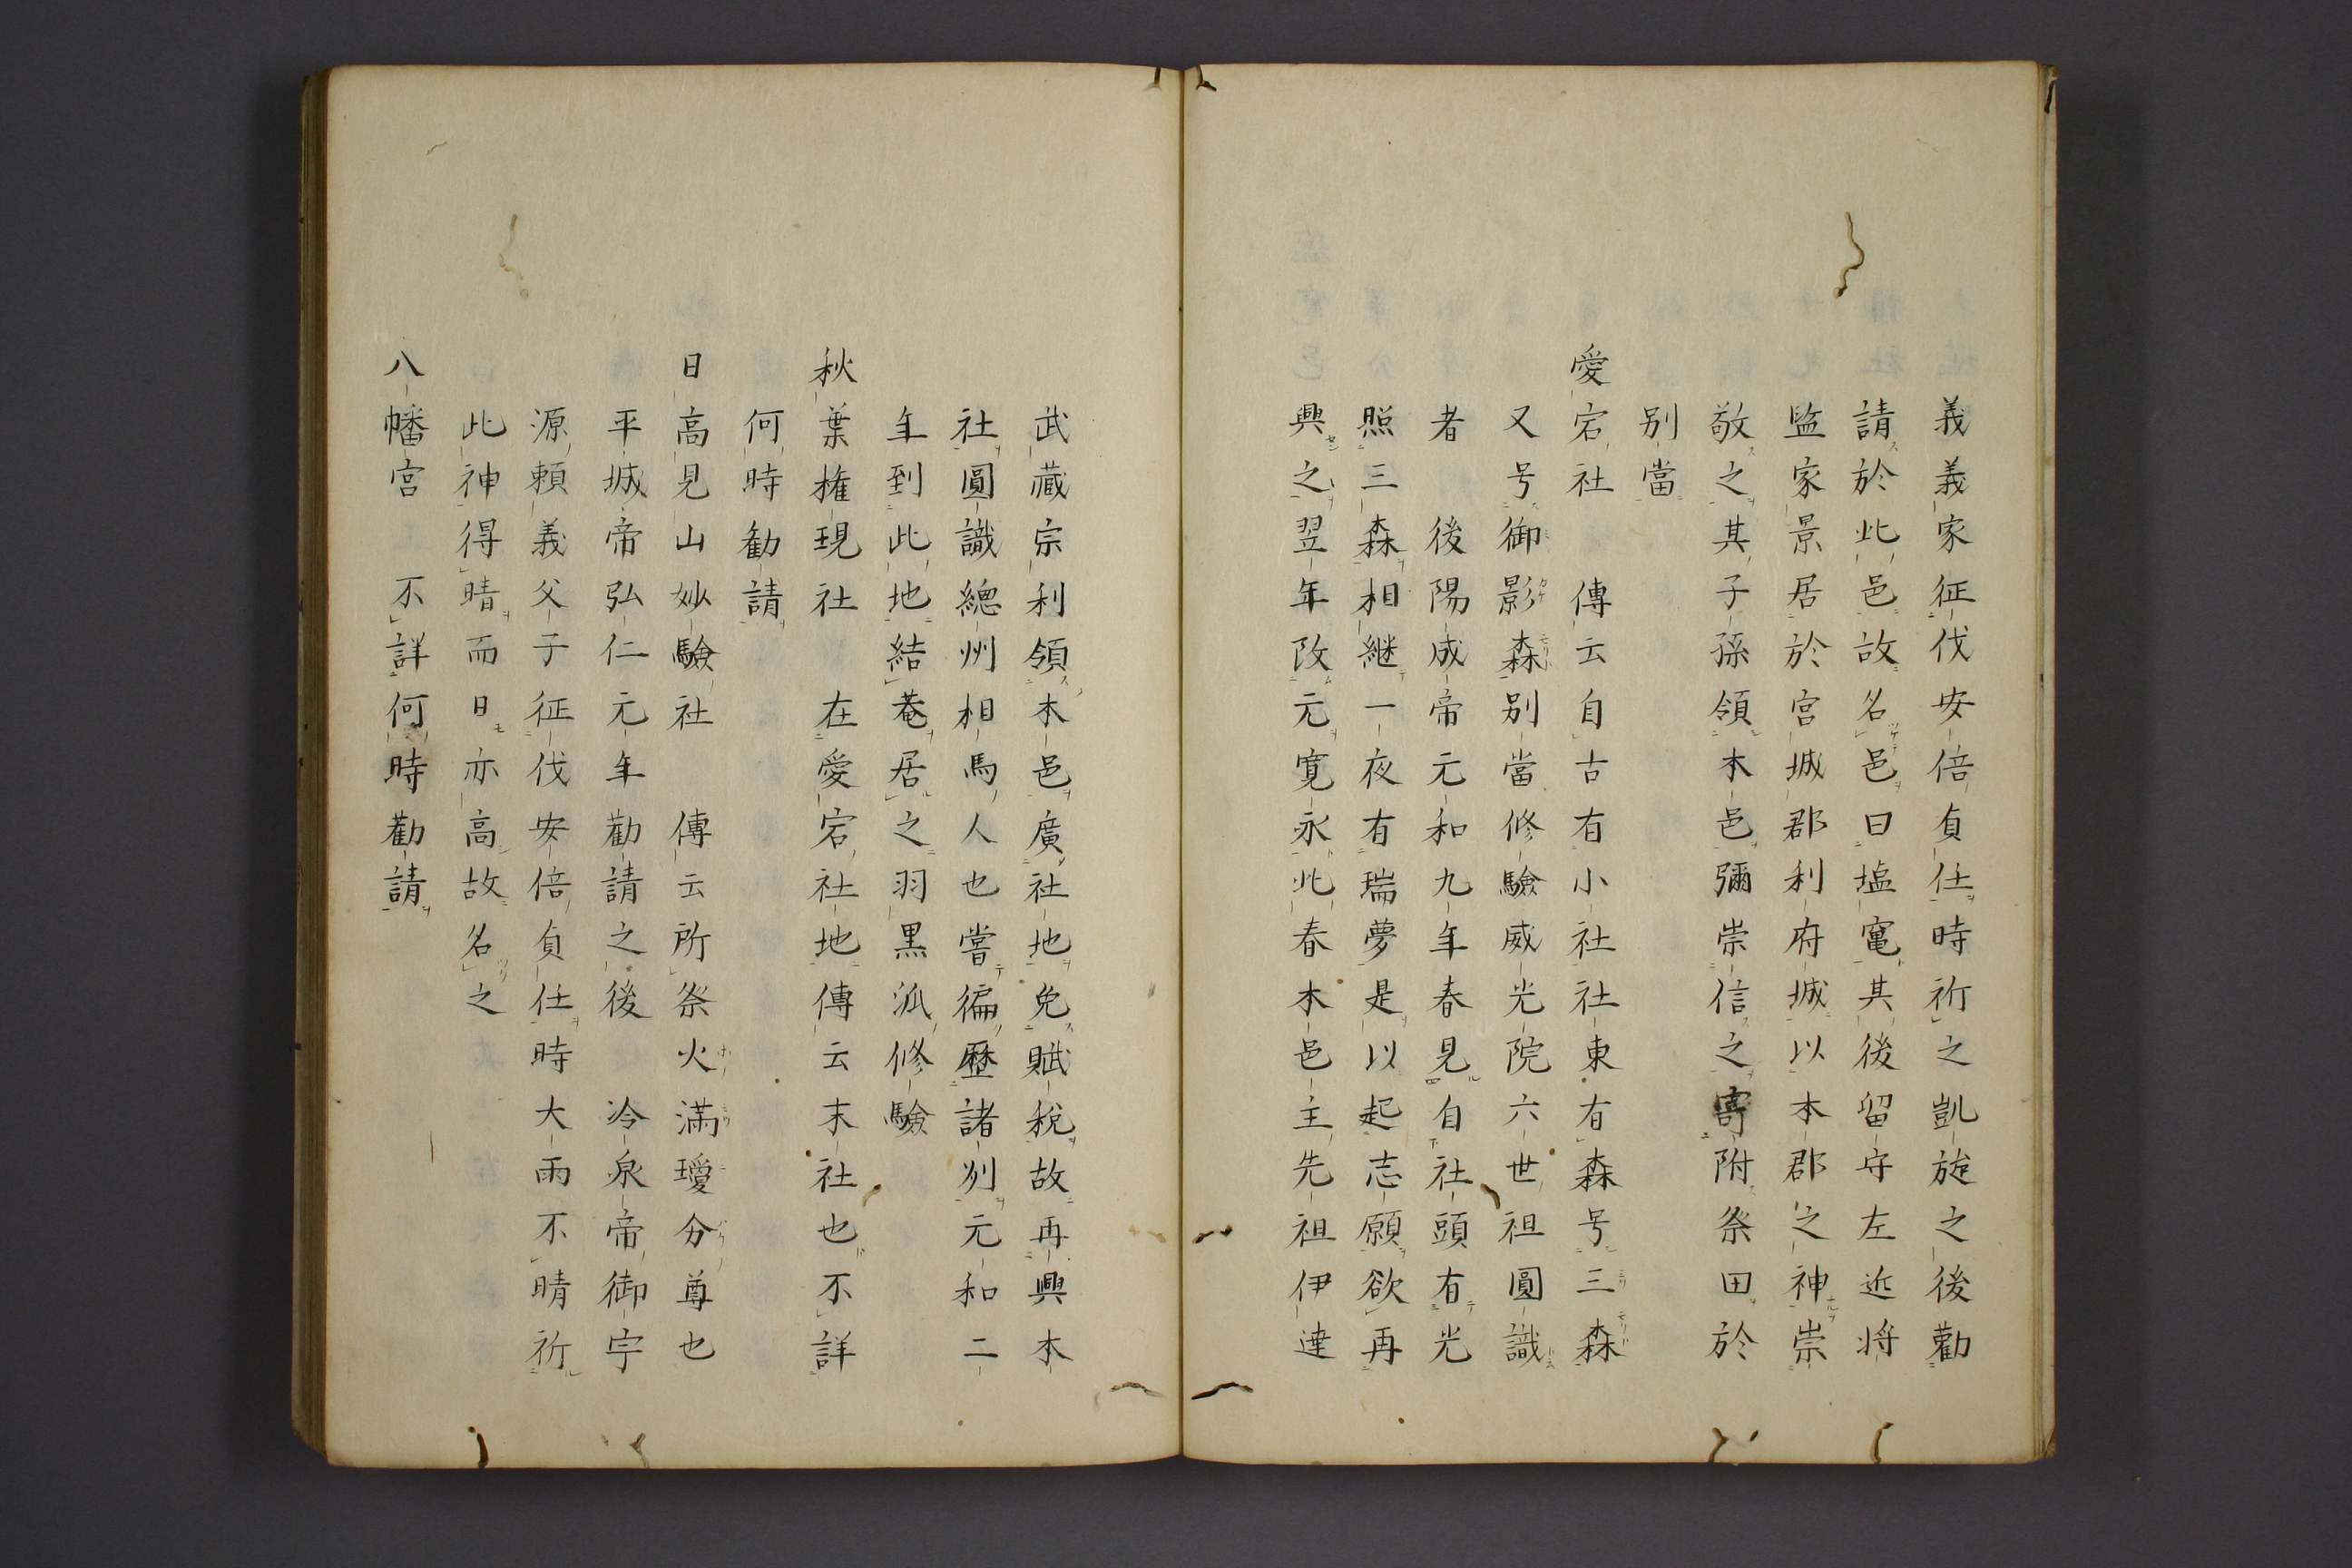 義義家征伐安倍貞任時祈之凱旋之後勸
請於此邑故名邑曰塩竃其後留守左近将
監家景居於宮城郡利府城以本郡之神崇
敬之其子孫領本邑彌崇信之寄附祭田於
別當
愛宕社　傳云自古有小社社東有森号三森
又号御影森別當修驗威光院六世祖圓識
者　後陽成帝元和九年春見自社頭有光
照三森相継一夜有瑞夢是以起志願欲再
興之翌年改元寛永此春本邑主先祖伊達
武藏宗利領本邑廣社地免賦税故再興本
社圓識總州相馬人也嘗徧歷諸州元和二
年到此地結菴居之羽黒派修驗
秋葉権現社　在愛宕社地傳云末社也不詳
何時勸請
日高見山妙驗社　傳云所祭火満瓊分尊也
平城帝弘仁元年勸請之後　冷泉帝御宇
源頼義父子征伐安倍貞任時大雨不晴祈
此神得晴而日亦高故名之
八幡宮　不詳何時勸請